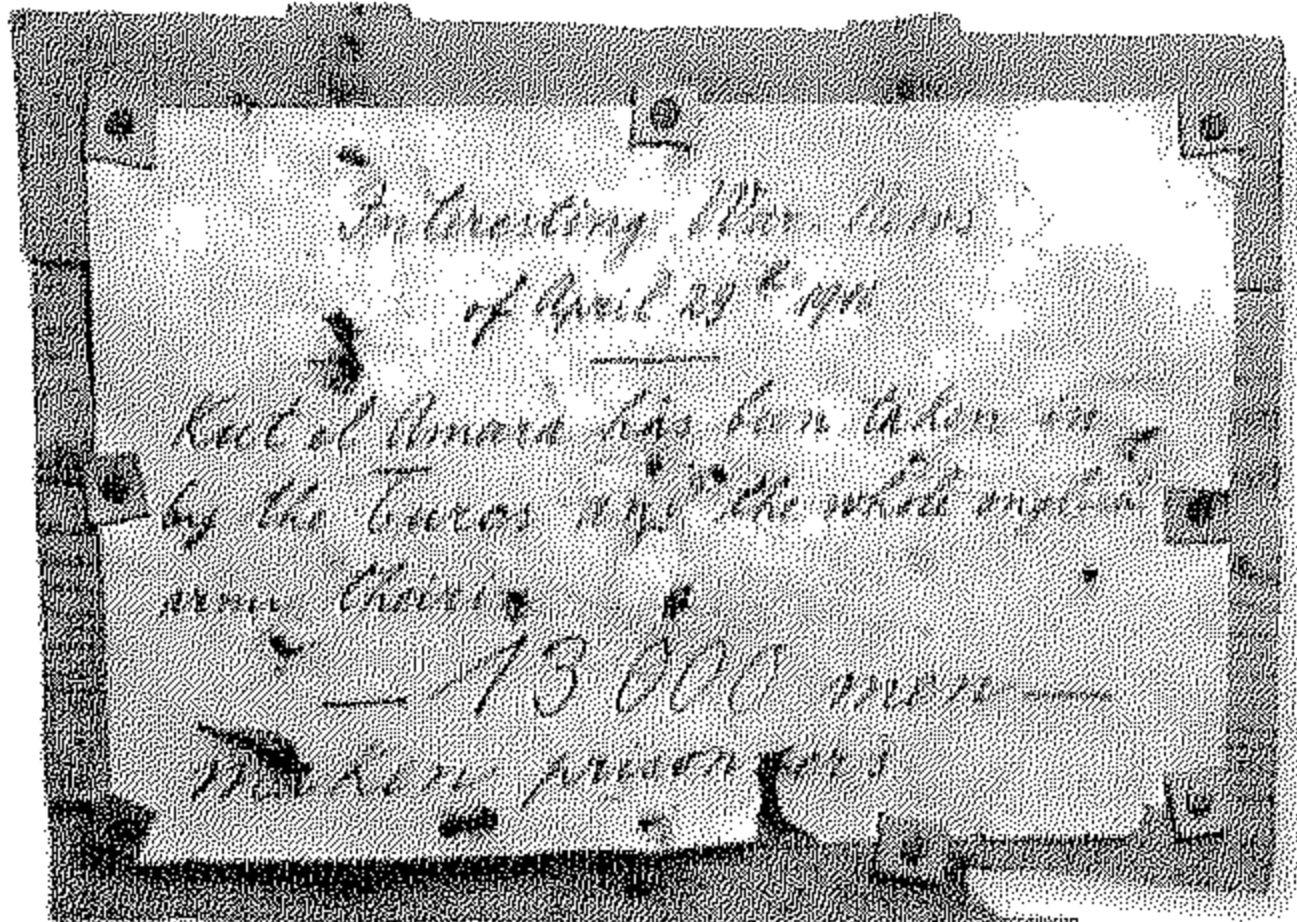 Interesting War-news
of April 29th 1916
Kut el Amara has been taken in
by the Turcs and the whole english
army therein
— 13000 men —
maken prisoners